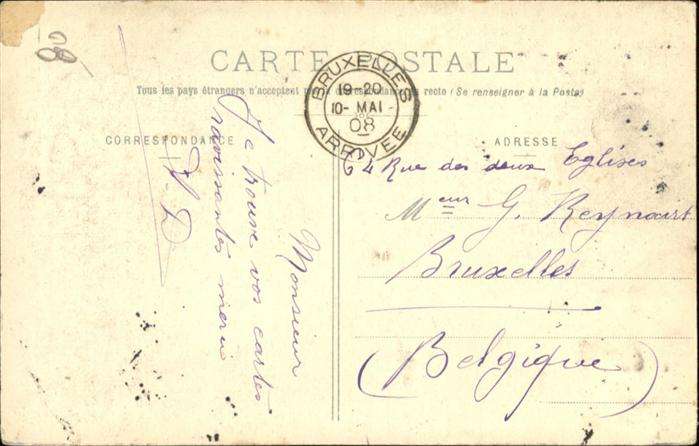 08
CARTE POSTALE
Tous les pays étrangers n'acceptent pas la correspondance au recto (Se renseigner à la Poste)
BRUXELLES
19-20
10- MAI -
08
ARRIVÉE
CORRESPONDANCE
ADRESSE
Monsieur
Je trouve vos cartes
ravissantes merci
V. D
64 Rue des deux Eglises
Meur G. Reynaert
Bruxelles
(Belgique)